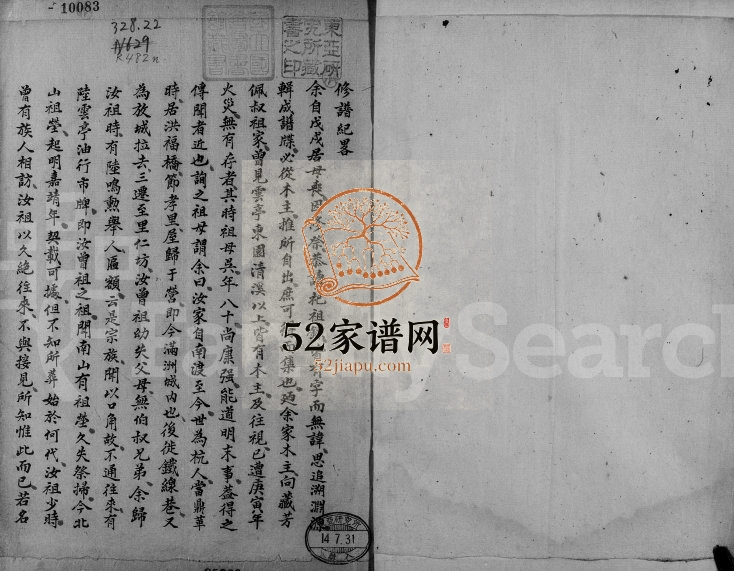 10083
328.22
N629
R482n
東亞研
究所藏
書之印
修譜紀畧
余自戊戌居母喪 祭 祀祖 字而無諱思追溯淵源
輯成譜牒必從木主推所自出庶可 集也 余家木主向藏芳
佩叔祖家曾見雲亭東園清溪以上皆有木主及往視已遭庚寅年
火災無有存者其時祖母吳年八十尚康强能道明末事蓋得之
傳聞者近也詢之祖母謂余曰汝家自南渡至今世為杭人當鼎革
時居洪福橋節孝里屋歸于營即今滿洲城内也後徙鐵線巷又
為放城拉去三遷至里仁坊汝曾祖幼失父母無伯叔兄弟余歸
汝祖時有陸鳴勲舉人匾額云是宗族聞以口角故不通往來有
陸雲亭油行市牌即汝曾祖之祖聞南山有祖塋久失祭掃今北
山祖塋起明嘉靖年契載可據但不知所葬始於何代汝祖少時
曾有族人相訪汝祖以久絶往來不與接見所知惟此而已若名
14.7.31
52家谱网
52jiapu.com
FamilySearch